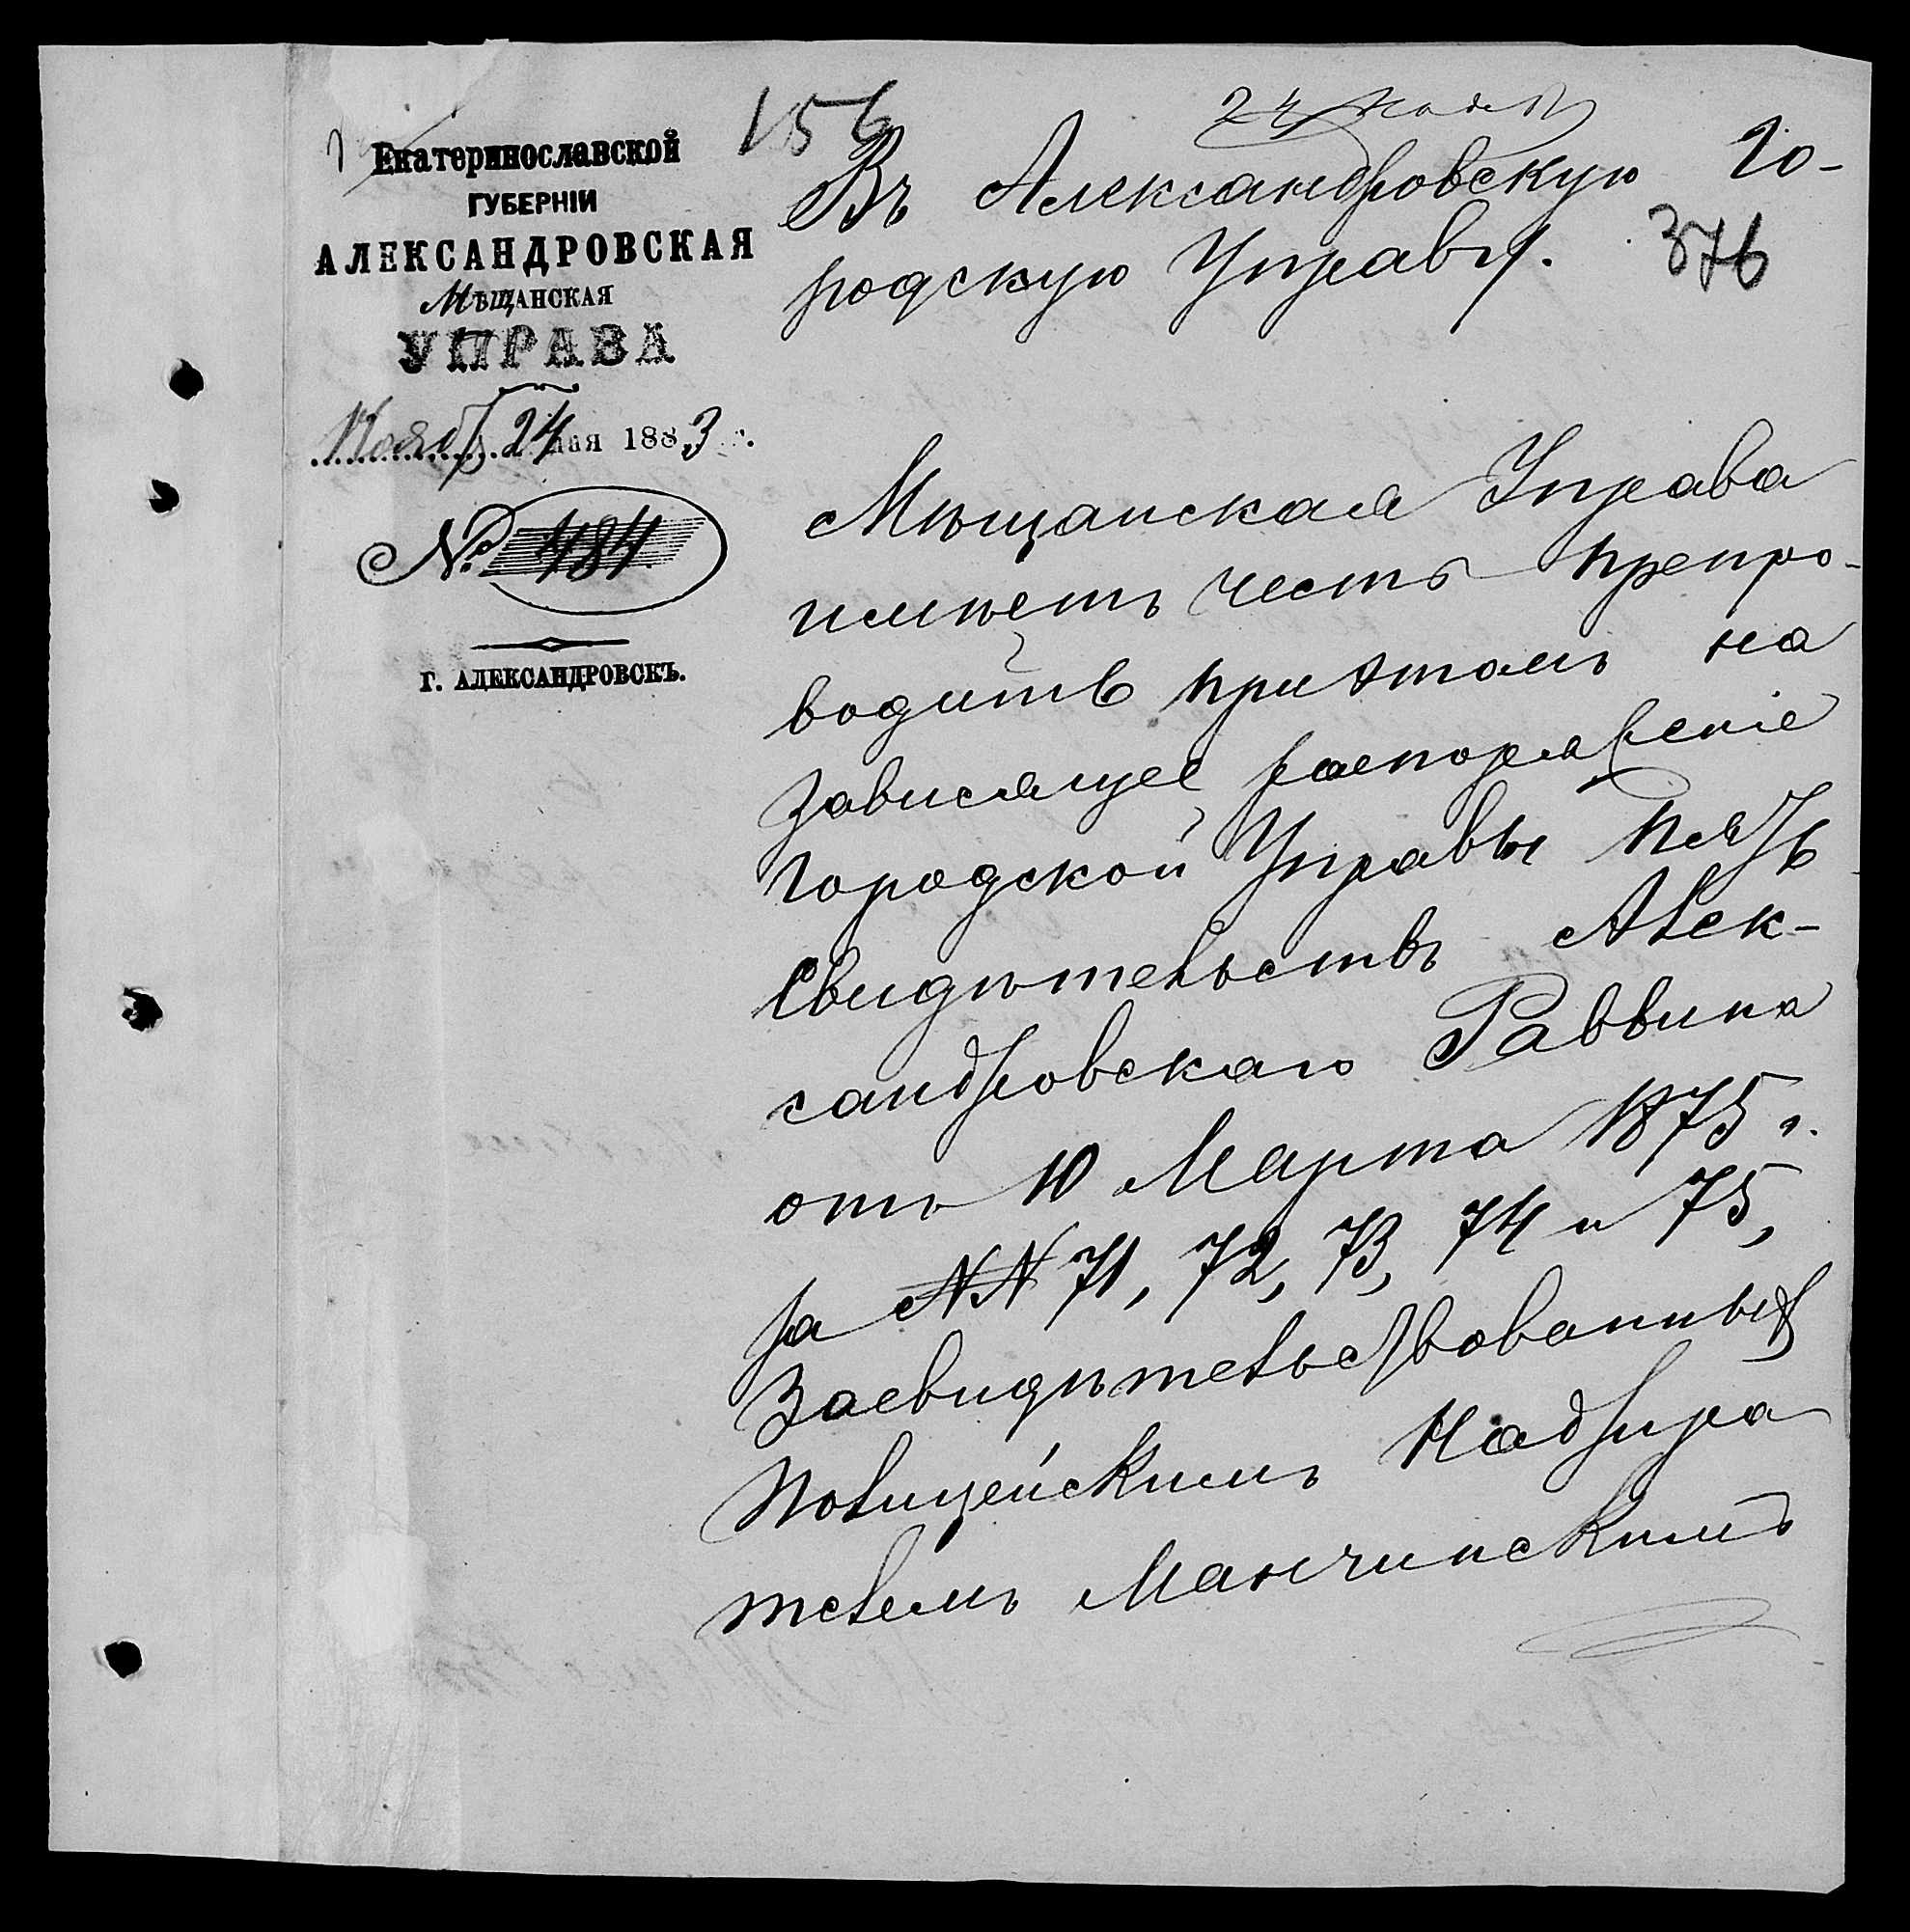 Екатеринославской
ГУБЕРНІИ
АЛЕКСАНДРОВСКАЯ
МѢЩАНСКАЯ
УПРАВА
Ноября 24 дня 1883 г.
№ 484
Г. АЛЕКСАНДРОВСКЪ.
156
24 Ноября
Въ Александровскую Го-
родскую Управу.
376
Мѣщанская Управа
имѣетъ честь препро-
водить при этомъ на
зависящее распоряженіе
Городской Управы пять
Свидѣтельствъ Алек-
сандровскаго Раввина
отъ 10 Марта 1875 г.
за №№ 71, 72, 73, 74 и 75,
Засвидѣтельствованныхъ
Полицейскимъ Надзира
телемъ Манчинскимъ